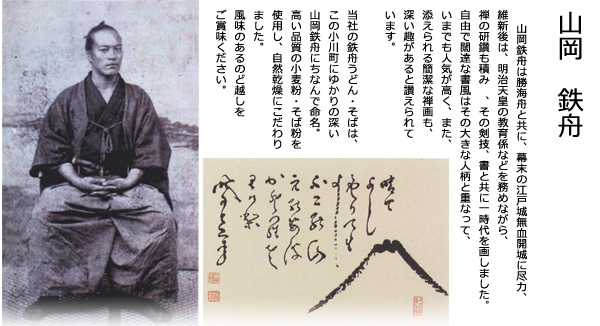 山岡　鉄舟
山岡鉄舟は勝海舟と共に、幕末の江戸城無血開城に尽力、
維新後は、明治天皇の教育係などを務めながら、
禅の研鑽も積み　、その剣技、書と共に一時代を画しました。
自由で闊達な書風はその大きな人柄と重なって、
いまでも人気が高く、また、
添えられる簡潔な禅画も、
深い趣があると讃えられて
います。
当社の鉄舟うどん・そばは、
この小川町にゆかりの深い
山岡鉄舟にちなんで命名。
高い品質の小麦粉・そば粉を
使用し、自然乾燥にこだわり
ました。
風味のあるのど越しを
ご賞味ください。
晴て
よし